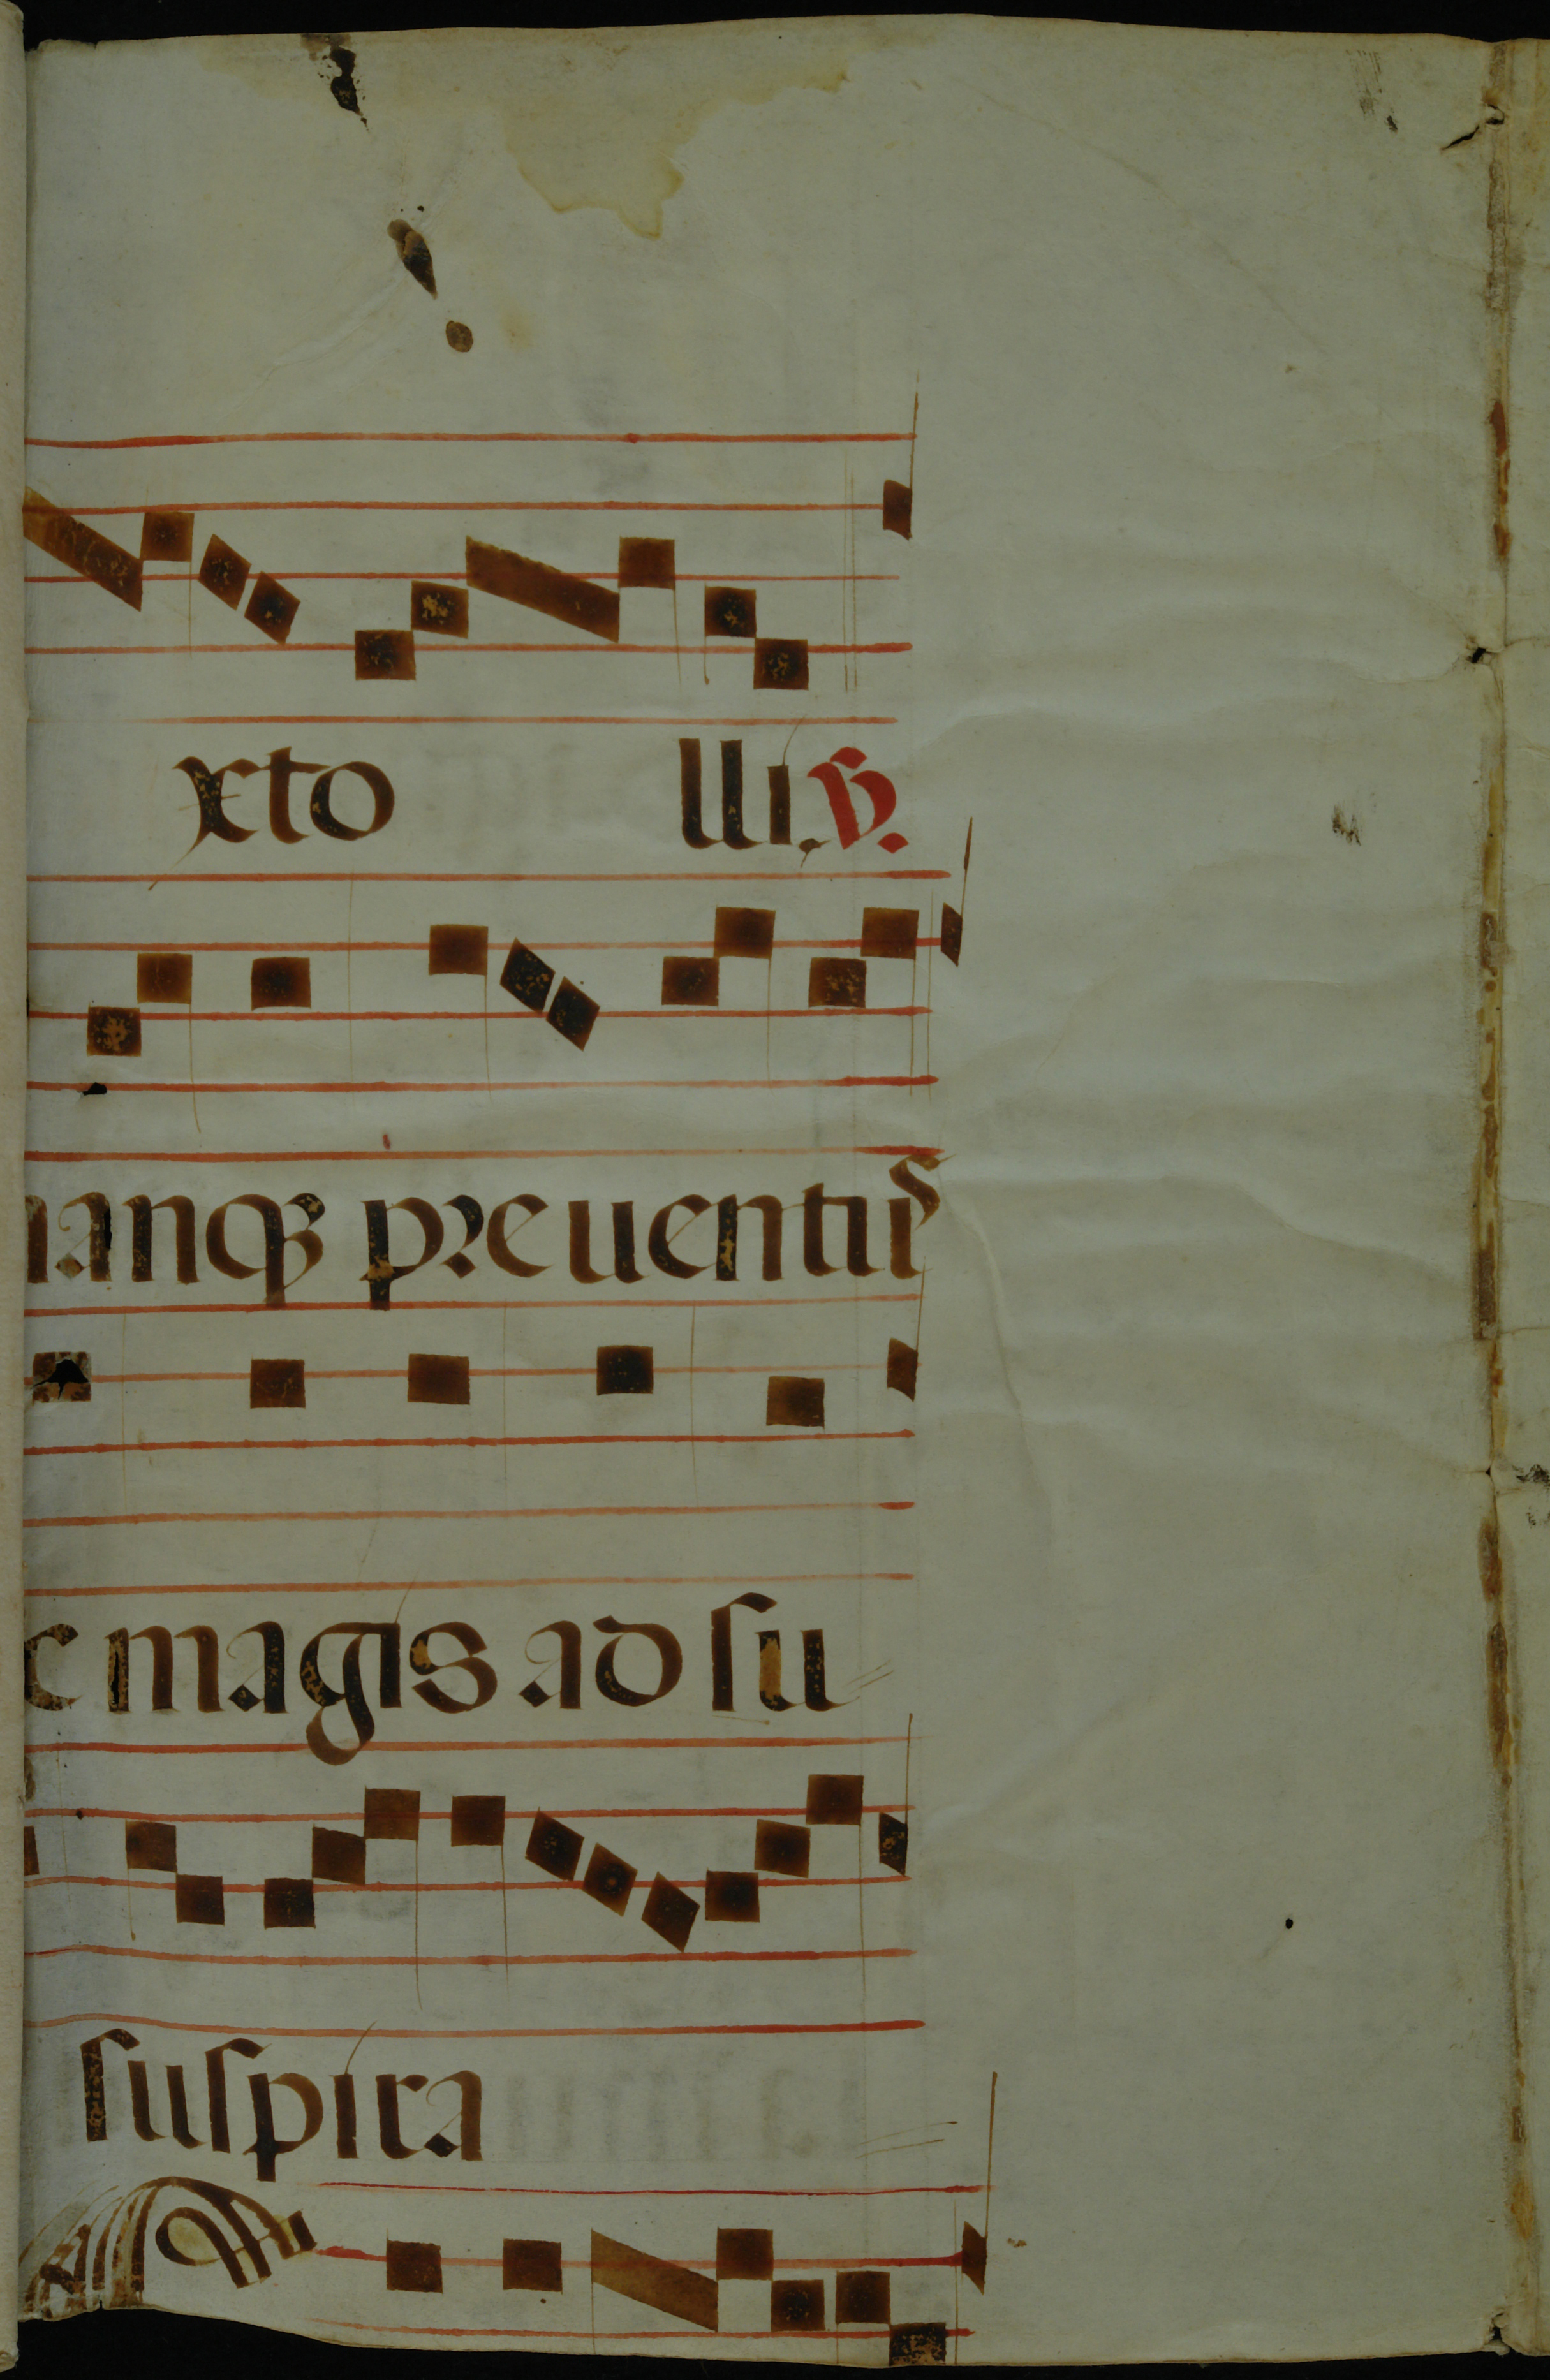 xto lli. V.
nanqꝫ preuentus
c magis ad ſu
ſuſpira